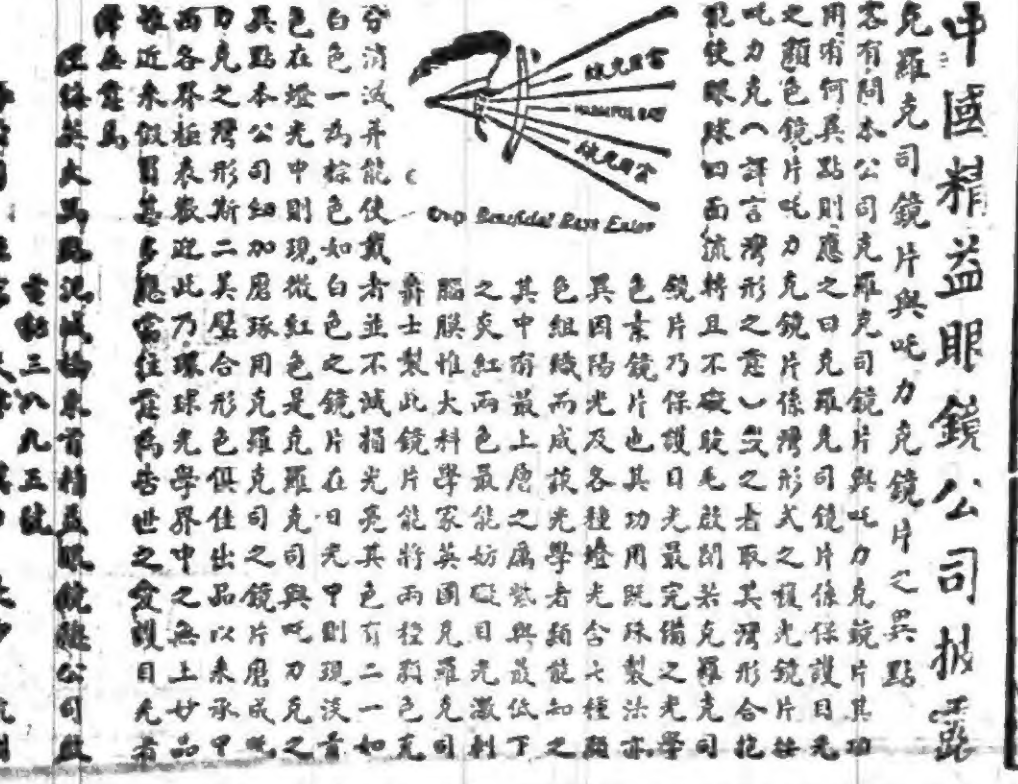 中國精益眼鏡公司披露
克羅克司鏡片與吒力克鏡片之異點
客有問本公司克羅克司鏡片與吒力克鏡片其功
用有何異點則應之曰克羅克司鏡片係保護目光
之顏色鏡片吒力克鏡片係灣形式之複光鏡片按
吒力克（譯言灣形之意）之者取其灣形合抱
能使眼球四面流轉且不礙睫毛啟閉若克羅克司
鏡片乃保護日光最完備之光學
色素鏡片也其功用既殊製法亦
異因陽光及各種燈光含七種顏
色組織而成故光學者類能知之
其中有最上層之属紫與最低下
之炎紅兩色最能妨礙目光激刺
腦膜惟大科學家英國克羅克司
爵士製此鏡片能將兩種顏色克
分消滅并能使戴者並不減損光亮其色有二一如
白色一為棕色如白色之鏡片在日光中則現淡青
色在燈光中則現微紅色是克羅克司與吒力克之
異點本公司細加磨琢用克羅克司之鏡片磨成吒
力克之灣形斯二美璧合形色俱佳出品以來承甲
西各界極表歡迎此乃環球光學界中之無上妙品
近來仿冒甚多應當注意為告世之愛護目光者
英大馬路泥城橋東首精益眼鏡總公司啟
電話三八九五號
紫光線
HARMFUL RAY
Crop Beneficial Rays Enter